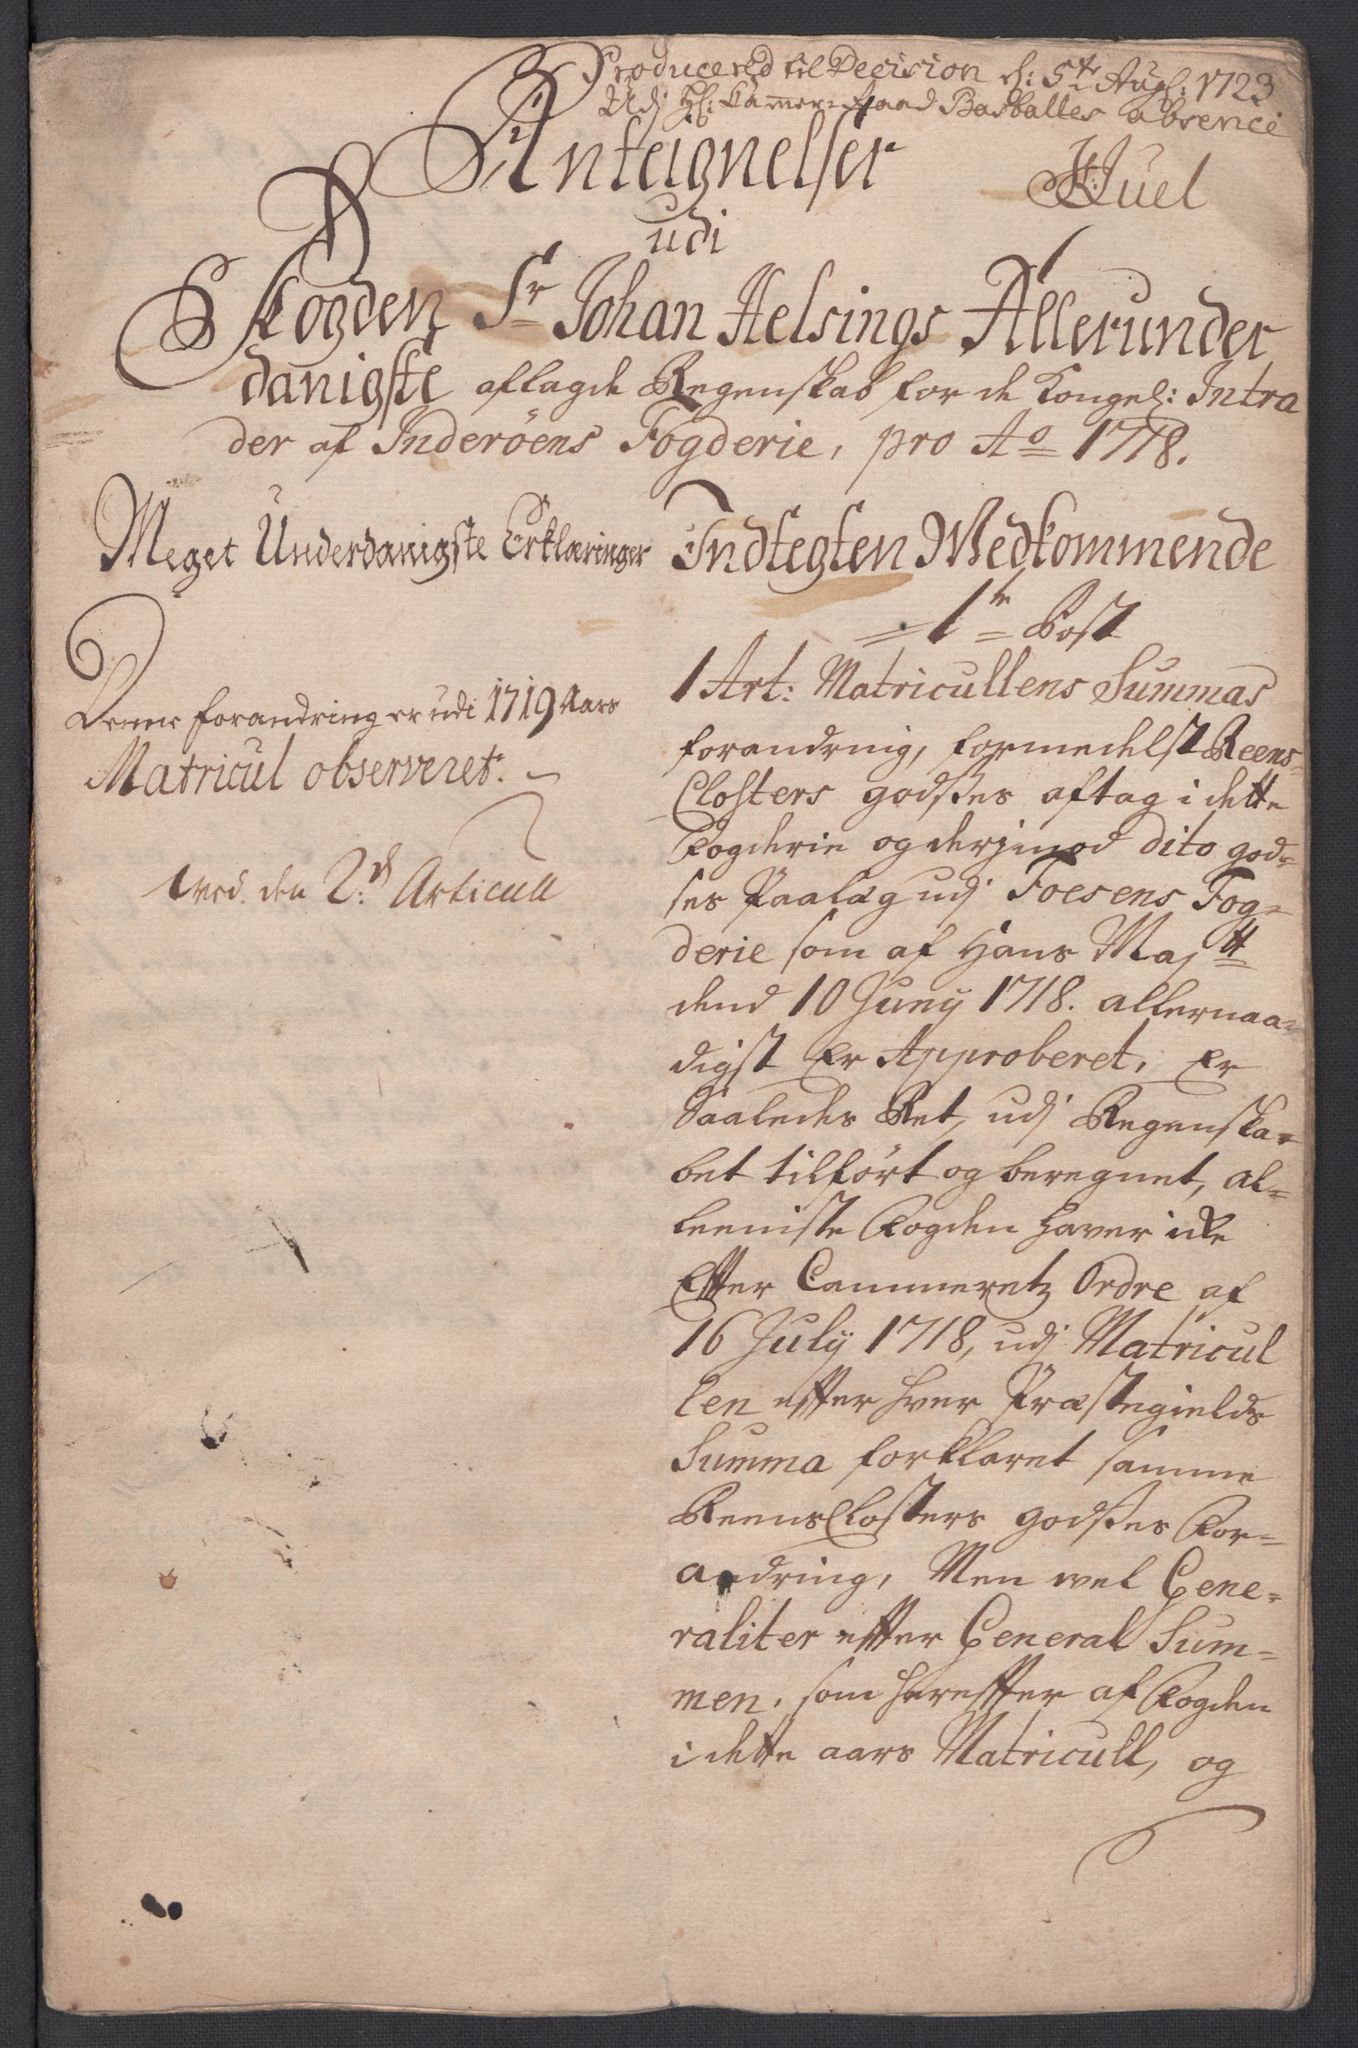 Producered til Decision d: 5te Aug: 1723
Udj Hl: Kammer-Raad Basballes absence
JJuel
Anteignelser
udi
Fogden Sr Johan Helsings Allerunder
danigste aflagde Regenskab for de Kongel: Intra
der af Inderöens Fogderie, pro Ao 1718.
Meget Underdanigste Erklæringer
Denne forandring er udi 1719 Aars
Matricul observeret.
ved den 2d Articull
Indtegten Medkommende
1te Post
1 Art: Matricullens Summas
forandrnig, formedelst Reens-
Closters godses aftag i dette
Fogderie og derjmod dito god-
ses Paalæg udj Foesens Fog-
derie som af Hans Maytt
dend 10 Juny 1718. allernaa-
digst Er Approberet, Er
Saaledes Ret, udj Regenska-
bet tilfört og beregnet, al-
leeniste Fogden haver icke
Efter Cammeretz Ordre af
16 July 1718, udj Matricul
len efter hver Præstegields
Summa forklaret samme
ReensClosters godses For-
andring, Men vel Gene-
raliter efter General Sum-
men, som herefter af Fogden
i dette aars Matricull, og